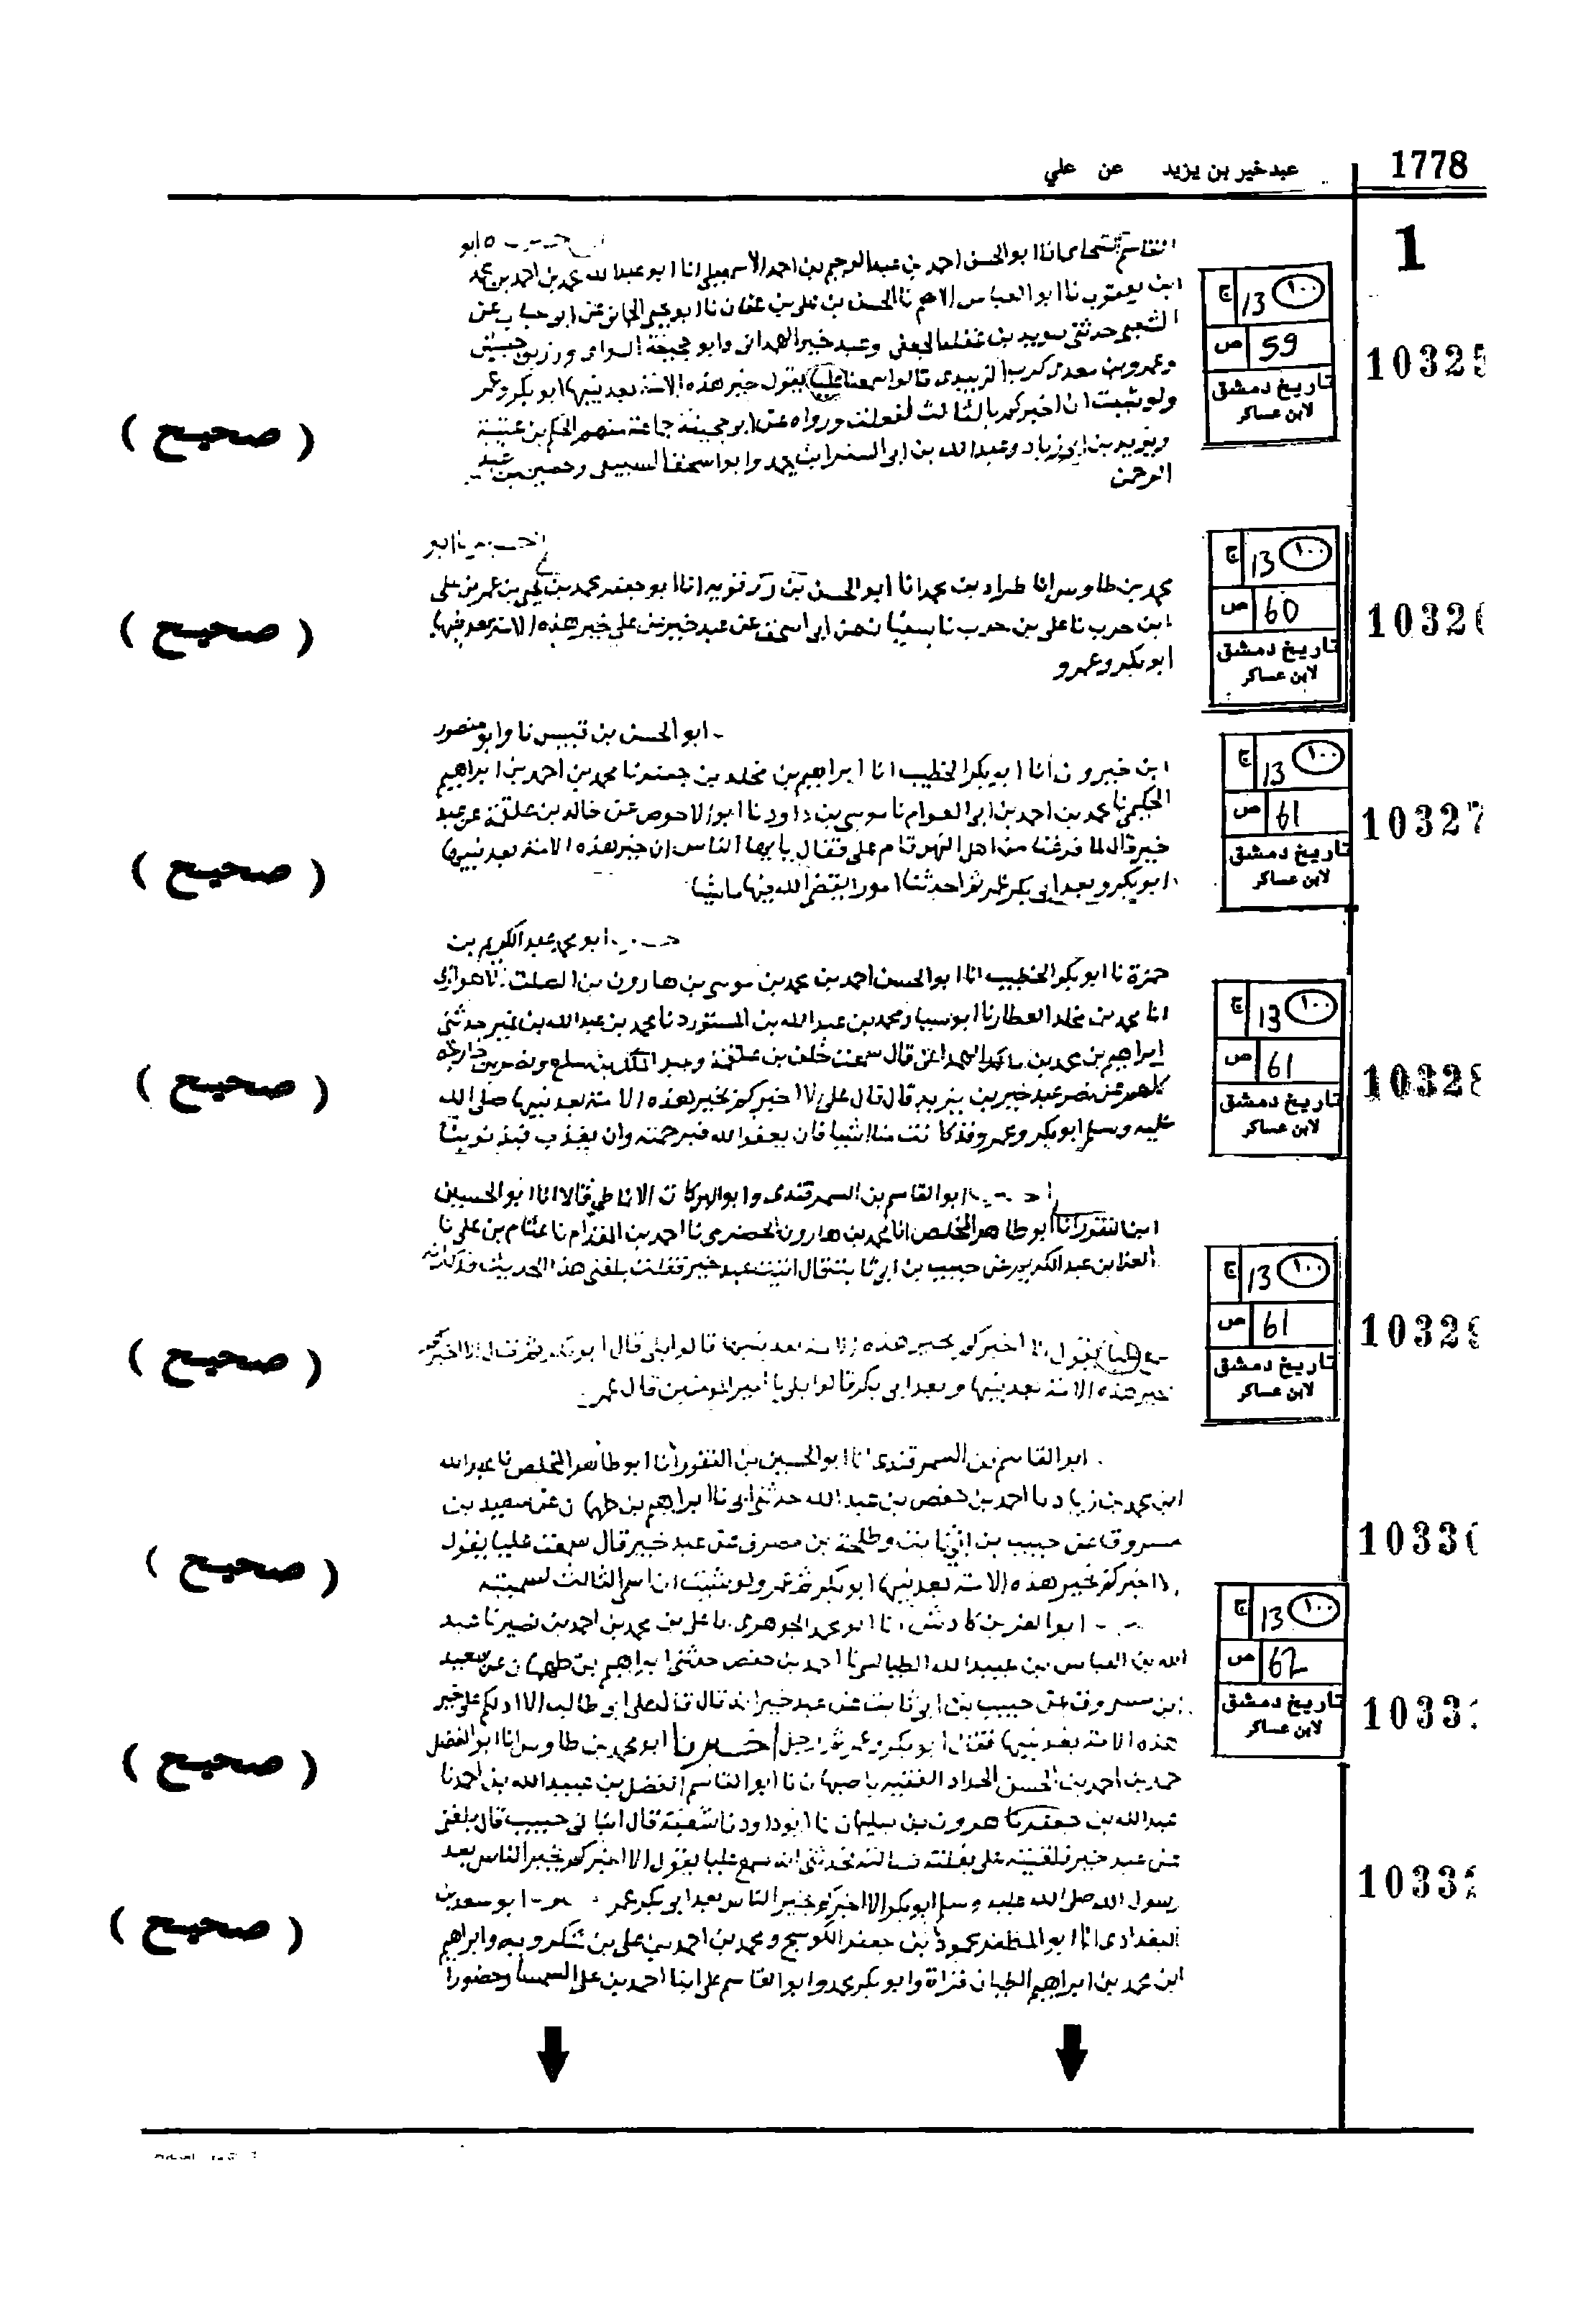 1778
عبدخير بن يزيد عن علي
1
القاسم الشحامى انا ابو الحسن احمد بن عبد الرحيم بن احمد الاسمعيلى انا ابو عبد الله محمد بن احمد بن محمد
ابن يعقوب نا ابو العباس الاصم نا الحسن بن على بن عفان نا ابو يحيى الحمانى عن ابى جناب عن
الشعبى حدثنى سويد بن غفلة الجعفى وعبد خير الهمدانى وابو جحيفة السوائى وزر بن حبيش
وعمرو بن معدى كرب الزبيدى قالوا سمعنا عليا يقول خير هذه الامة بعد نبيها ابو بكر وعمر
ولو شئت ان اخبركم بالثالث لفعلت ورواه عن ابى جحيفة جماعة منهم الحكم بن عتيبة
ويزيد بن ابى زياد وعبد الله بن ابى السفر وابو اسحق السبيعى وحصين بن عبد
الرحمن
( صحيح )
١٠٠ 13 ج
59 ص
تاريخ دمشق
لابن عساكر
10325
محمد بن طاوس انا طراد بن محمد انا ابو الحسن بن رزقويه انا ابو جعفر محمد بن يحيى بن عمر بن على
ابن حرب نا على بن حرب نا سفيان عن ابى اسحق عن عبد خير عن على خير هذه الامة بعد نبيها
ابو بكر وعمر
( صحيح )
١٠٠ 13 ج
60 ص
تاريخ دمشق
لابن عساكر
1032
ابو الحسن بن قبيس نا وابو منصور
ابن خيرون انا ابو بكر الخطيب انا ابراهيم بن مخلد بن جعفر نا محمد بن احمد بن ابراهيم
الحكيمى نا محمد بن احمد بن ابى العوام نا موسى بن داود نا ابو الاحوص عن خالد بن علقمة عن عبد
خير قال لما فرغنا من اهل النهر قام على فقال يا ايها الناس ان خير هذه الامة بعد نبيها
ابو بكر وبعد ابى بكر عمر ثم احدثنا امورا يقضى الله فيها ما يشا
( صحيح )
١٠٠ 13 ج
61 ص
تاريخ دمشق
لابن عساكر
10327
ابو محمد عبد الكريم بن
حمزة نا ابو بكر الخطيب انا ابو الحسن احمد بن محمد بن موسى بن هارون بن الصلت الاهوازى
انا محمد بن مخلد العطار نا ابو سيار محمد بن عبد الله بن المستورد نا محمد بن عبد الله بن نمير حدثنى
ابراهيم بن محمد بن مالك الهمدانى قال سمعت خلف بن علقمة وعبد الملك بن سلع
كلهم عن عبد خير بن يزيد قال قال على الا اخبركم بخير هذه الامة بعد نبيها صلى الله
عليه وسلم ابو بكر وعمر وقد كانت منا اشيا فان يعف الله فبرحمته وان يعذب فبذنوبنا
( صحيح )
١٠٠ 13 ج
61 ص
تاريخ دمشق
لابن عساكر
10328
ابو القاسم بن السمرقندى وابو البركات الانماطى قالا انا ابو الحسين
ابن النقور انا ابو طاهر المخلص انا محمد بن هارون الحضرمى نا احمد بن المقدام نا عثام بن على نا
عبد الكريم عن حبيب بن ابى ثابت قال اتيت عبد خير فقلت بلغنى هذا الحديث
عليا يقول الا اخبركم بخير هذه الامة بعد نبيها قالوا بلى قال ابو بكر ثم قال الا اخبركم
بخير هذه الامة بعد نبيها وبعد ابى بكر قالوا بلى يا امير المومنين قال عمر
( صحيح )
١٠٠ 13 ج
61 ص
تاريخ دمشق
لابن عساكر
10329
ابو القاسم بن السمرقندى انا ابو الحسين بن النقور انا ابو طاهر المخلص نا عبد الله
ابن محمد بن زياد نا احمد بن حفص بن عبد الله حدثنى ابى نا ابراهيم بن طهمان عن سعيد بن
مسروق عن حبيب بن ابى ثابت وطلحة بن مصرف عن عبد خير قال سمعت عليا يقول
الا اخبركم بخير هذه الامة بعد نبيها ابو بكر ثم عمر ولو شئت ان اسمى الثالث لسميته
( صحيح )
1033
ابو العز بن كادش انا ابو محمد الجوهرى نا على بن محمد بن احمد بن نصير نا عبد
الله بن العباس بن عبيد الله الطيالسى نا احمد بن حفص حدثنى ابراهيم بن طهمان عن سعيد
ابن مسروق عن حبيب بن ابى ثابت عن عبد خير انه قال قال على بن ابى طالب الا ادلكم على خير
هذه الامة بعد نبيها فقال ابو بكر وعمر ثم رجل اخبرنا ابو محمد بن طاوس انا ابو الفضل
حمد بن احمد بن الحسن الحداد الفقيه باصبهان نا ابو القاسم الفضل بن عبيد الله بن احمد نا
عبد الله بن جعفر نا هرون بن سليمان نا ابو داود نا شعبة قال انبانى حبيب قال بلغنى
عن عبد خير فلقيته على بغلته فسالته فحدثنى انه سمع عليا يقول الا اخبركم بخير الناس بعد
رسول الله صلى الله عليه وسلم ابو بكر الا اخبركم بخير الناس بعد ابو بكر عمر ابو سعد بن
البغدادى انا ابو المظفر محمود بن جعفر الكوسج ومحمد بن احمد بن على بن شكرويه وابراهيم
ابن محمد بن ابراهيم الطيان قراة وابو بكر محمد وابو القاسم على ابنا احمد بن على السمسار حضورا
( صحيح )
( صحيح )
١٠٠ 13 ج
62 ص
تاريخ دمشق
لابن عساكر
1033
1033